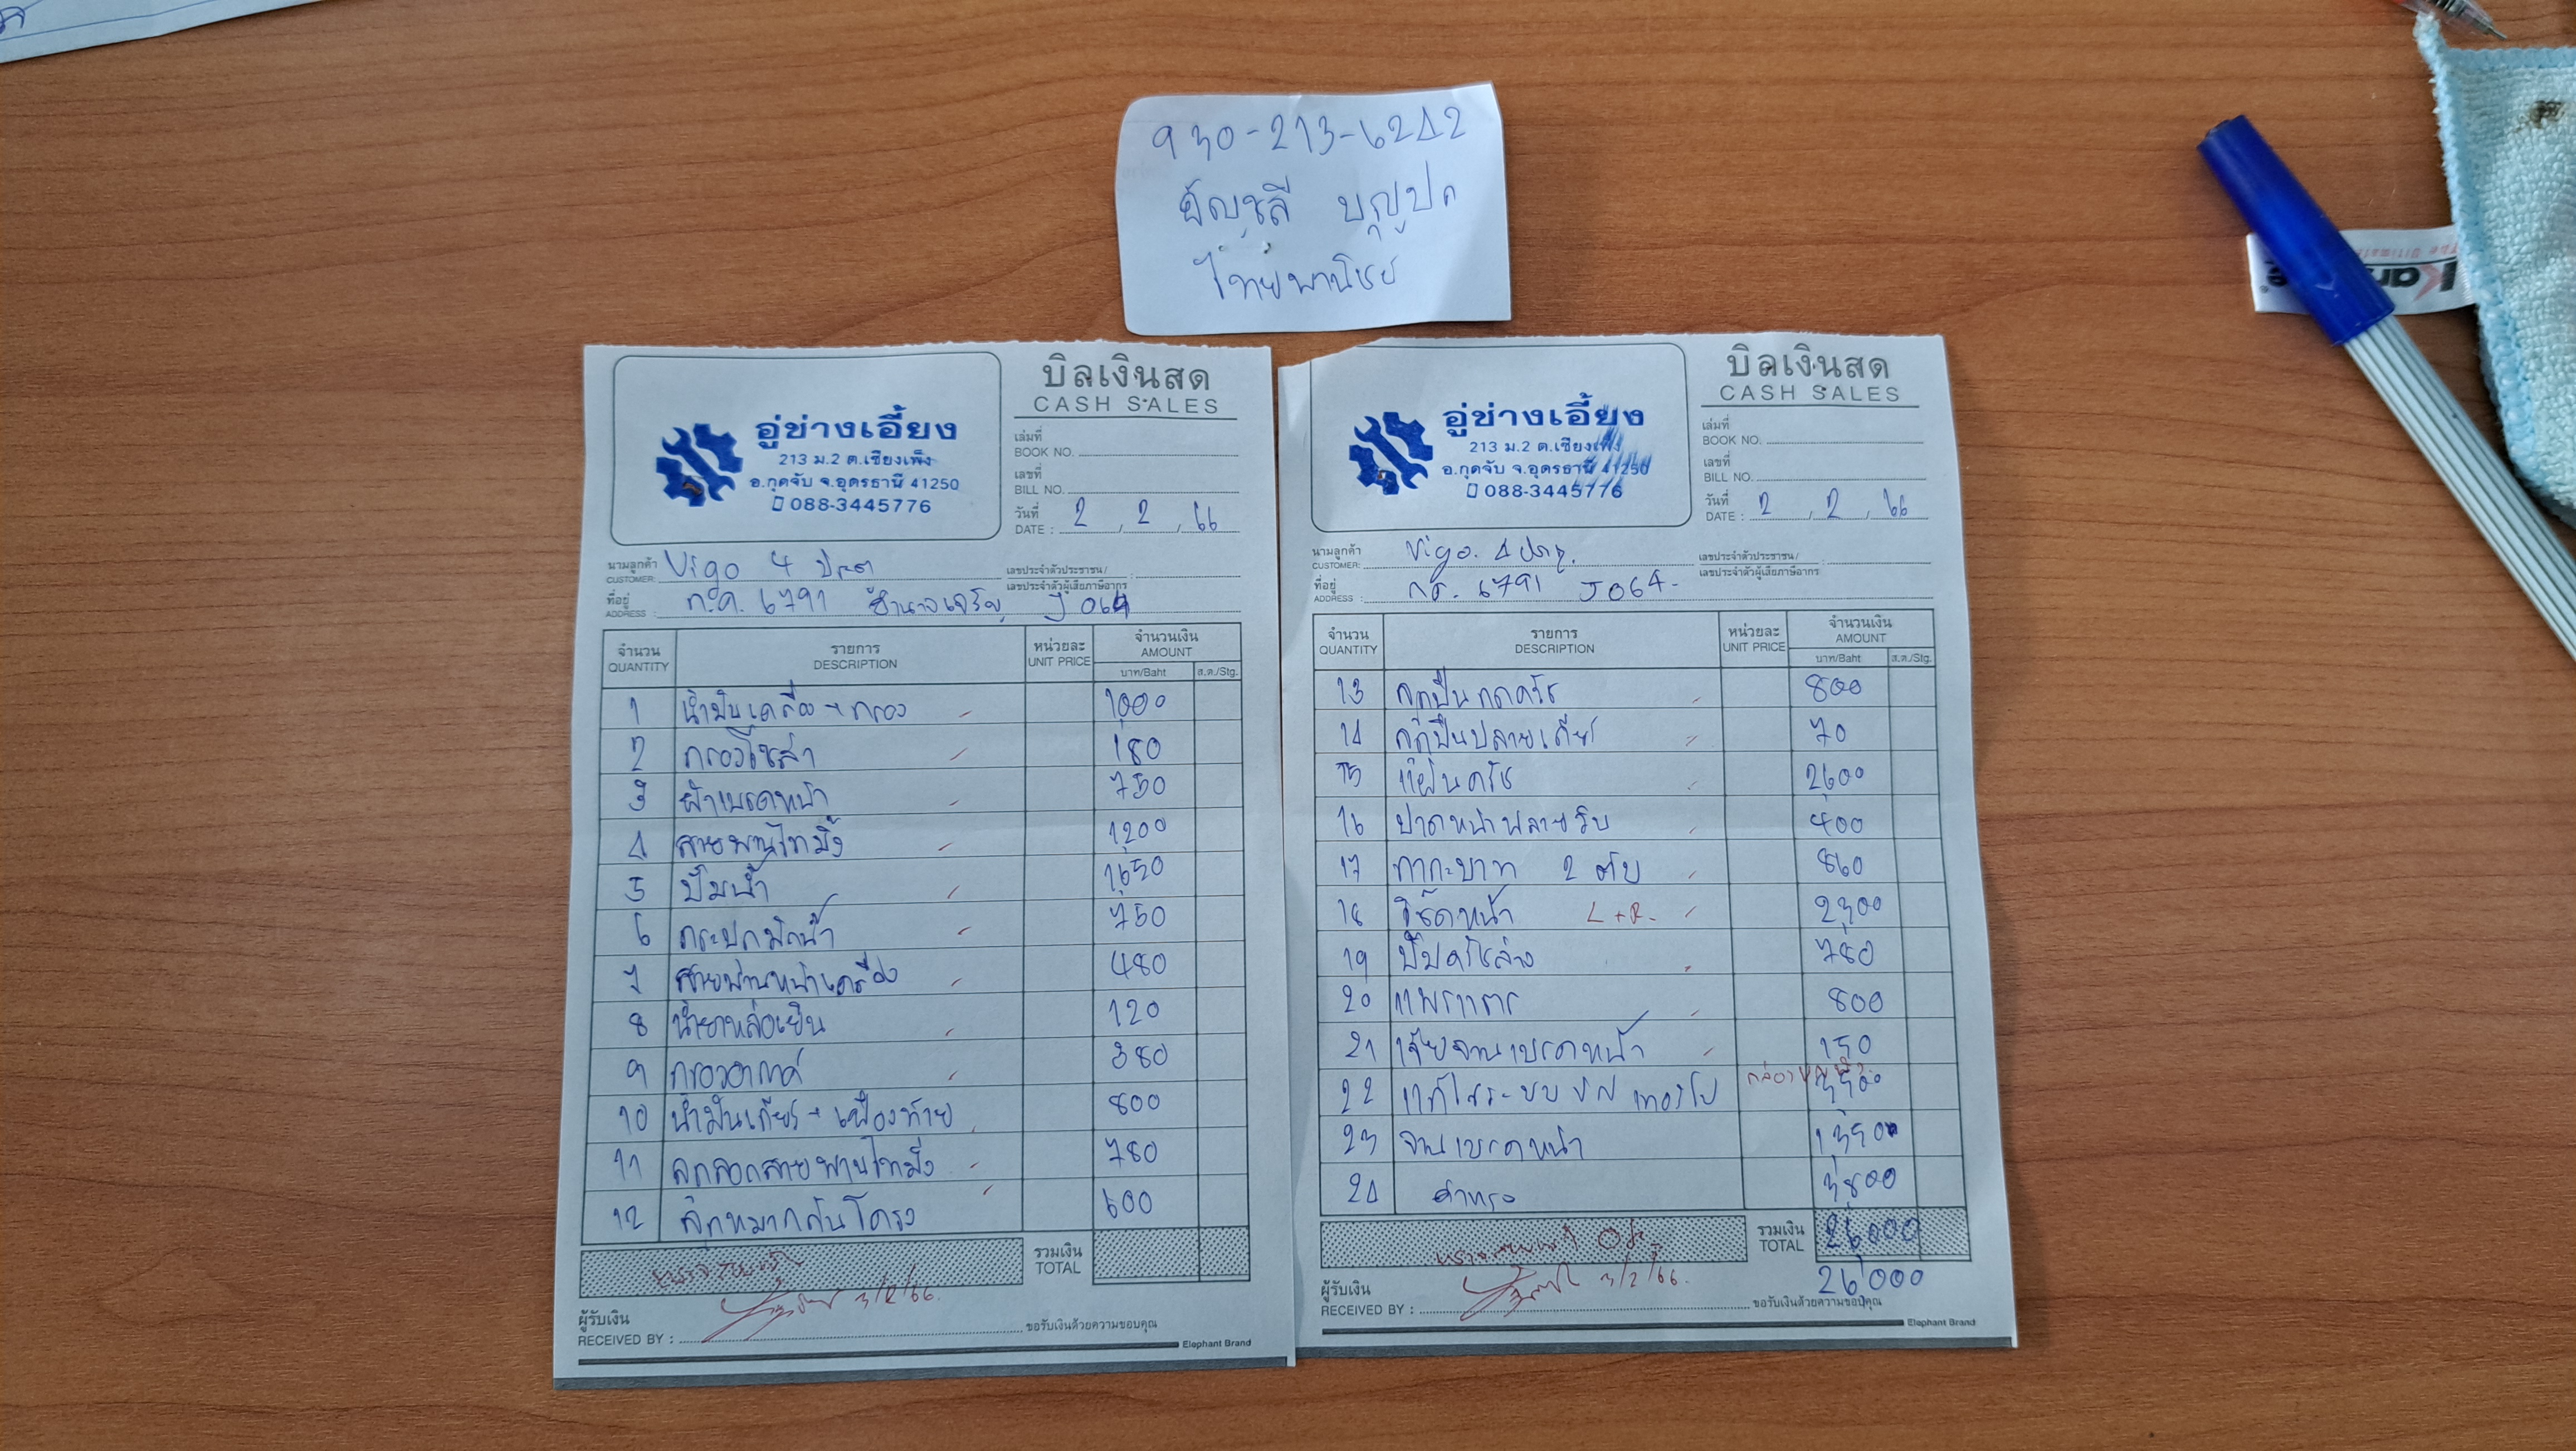 930-213-6242
อัญชลี บุญปก
ไทยพานิชย์
บิลเงินสด
CASH SALES
อู่ช่างเอี้ยง
213 ม.2 ต.เชียงเพ็ง
อ.กุดจับ จ.อุดรธานี 41250
088-3445776
เล่มที่
BOOK NO.
เลขที่
BILL NO.
วันที่
DATE : 2 , 2 , 66
นามลูกค้า
CUSTOMER: Vigo 4 ประตู
เลขประจำตัวประชาชน/
เลขประจำตัวผู้เสียภาษีอากร :
ที่อยู่
ADDRESS : 6791 อำนาจเจริญ J064
จำนวน รายการ หน่วยละ จำนวนเงิน
QUANTITY DESCRIPTION UNIT PRICE AMOUNT
บาท/Baht ส.ต./Stg.
1 น้ำมันเครื่อง + กรอง 1000
2 กรองโซล่า 180
3 ผ้าเบรคหน้า 750
4 สายพานไทมิ่ง 1200
5 ปั๊มน้ำ 1650
6 กระปุกฉีดน้ำ 750
7 สายพานหน้าเครื่อง 480
8 น้ำยาหล่อเย็น 120
9 กรองอากาศ 380
10 น้ำมันเกียร์ + เฟืองท้าย 800
11 ลูกลอกสายพานไทมิ่ง 780
12 ลูกหมากกันโครง 600
รวมเงิน
TOTAL
3/2/66
ผู้รับเงิน
RECEIVED BY :
ขอรับเงินด้วยความขอบคุณ
Elephant Brand
บิลเงินสด
CASH SALES
อู่ช่างเอี้ยง
213 ม.2 ต.เชียงเพ็ง
อ.กุดจับ จ.อุดรธานี 41250
088-3445776
เล่มที่
BOOK NO.
เลขที่
BILL NO.
วันที่
DATE : 2 , 2 , 66
นามลูกค้า
CUSTOMER: Vigo. 4 ประตู.
เลขประจำตัวประชาชน/
เลขประจำตัวผู้เสียภาษีอากร :
ที่อยู่
ADDRESS : 6791 J064-
จำนวน รายการ หน่วยละ จำนวนเงิน
QUANTITY DESCRIPTION UNIT PRICE AMOUNT
บาท/Baht ส.ต./Stg.
13 ลูกปืนกดครัช 800
14 ลูกปืนปลายเกียร์ 70
15 แผ่นครัช 2600
16 ปาดหน้าฟลายวิน 400
17 กากะบาท 2 ตับ 860
18 โช๊คหน้า L+R- 2300
19 ปั๊มครัชล่าง 780
20 800
21 เจียจานเบรคหน้า 150
22 แก้ไขระบบ เทอร์โบ 3500
23 จานเบรคหน้า 1350
24 ค่าแรง 3800
รวมเงิน
TOTAL 26,000
26,000
3/2/66.
ผู้รับเงิน
RECEIVED BY :
ขอรับเงินด้วยความขอบคุณ
Elephant Brand